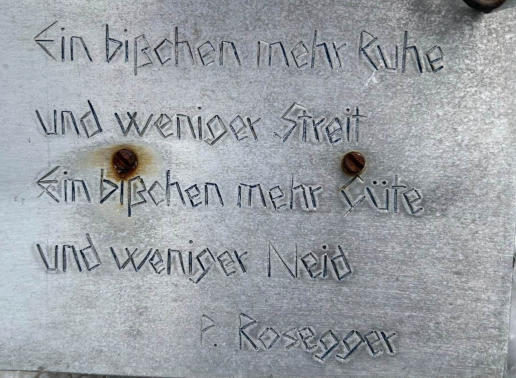 Ein bißchen mehr Ruhe
und weniger Streit
Ein bißchen mehr Güte
und weniger Neid
P. Rosegger